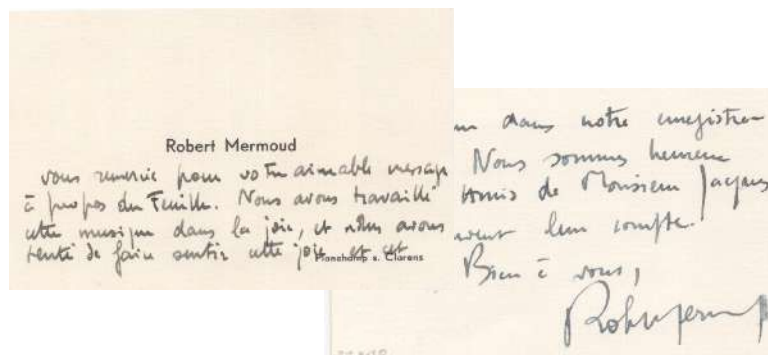 Robert Mermoud
vous remercie pour votre aimable message
à propos du Feuille. Nous avons travaillé
cette musique dans la joie, et nous avons
tenté de faire sentir cette joie et cet
Planchamp s. Clarens
dans notre enregistre-
Nous sommes heureux
Amis de Monsieur Jacques
leur compte.
Bien à vous,